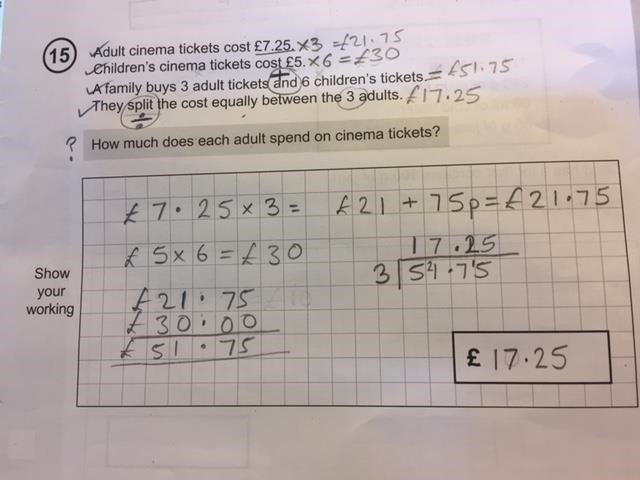 15
Adult cinema tickets cost £7.25. ×3 = £21.75
Children's cinema tickets cost £5. ×6 = £30
A family buys 3 adult tickets and 6 children's tickets. = £51.75
They split the cost equally between the 3 adults. £17.25
÷
? How much does each adult spend on cinema tickets?
£7.25 × 3 = £21 + 75p = £21.75
£5 × 6 = £30
Show your working
£21.75
£30.00
£51.75
17.25
3 5²1.7¹5
£ 17.25